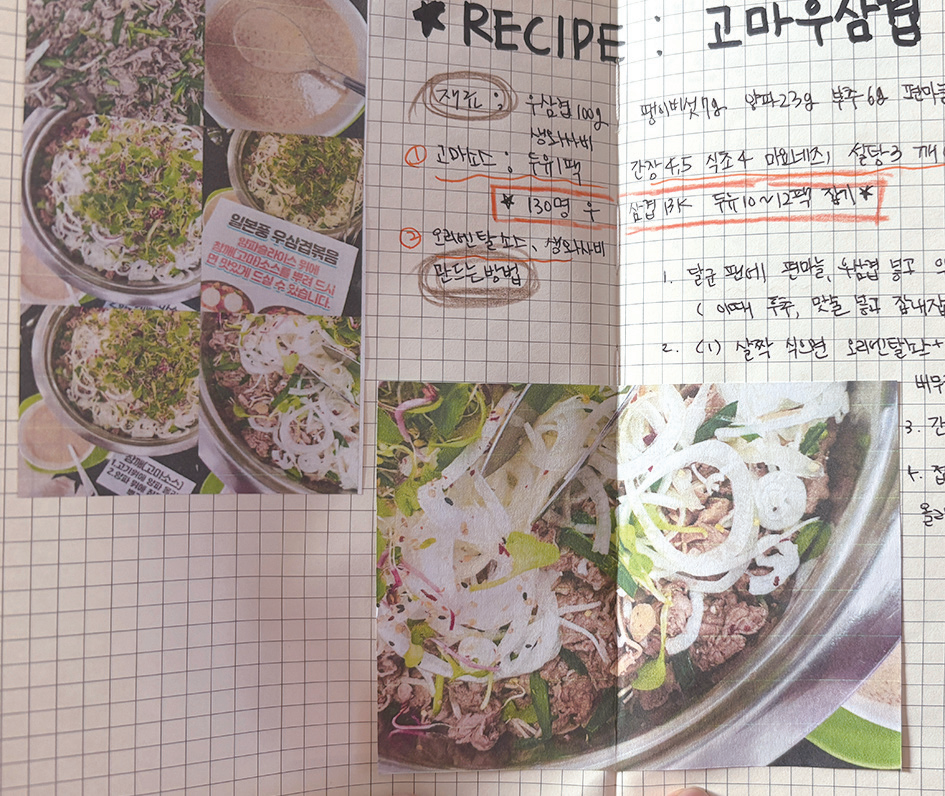 ★RECIPE : 고마우삼겹
재료 : 우삼겹 100g 팽이버섯 7g 양파 23g 부추 6g 편마늘
생와사비
① 고마소스 : 두유 1팩 간장 4,5 식초 4 마요네즈1 설탕 3 깨
★ 130명 우삼겹 13K 두유 10~12팩 잡기★
② 오리엔탈소스, 생와사비
만드는 방법
1. 달군 팬에 편마늘, 우삼겹 넣고
( 이때 후추, 맛술 넣고 잡내잡
2. (1) 살짝 식으면 오리엔탈소스+
배우
3. 간
4. 접
올려
일본풍 우삼겹볶음
양파슬라이스 위에
참깨(고마)소스를 뿌려 드시
면 맛있게 드실 수 있습니다.
참깨(고마소스)
1.고기위에 양파 올리
2.양파 위에 참